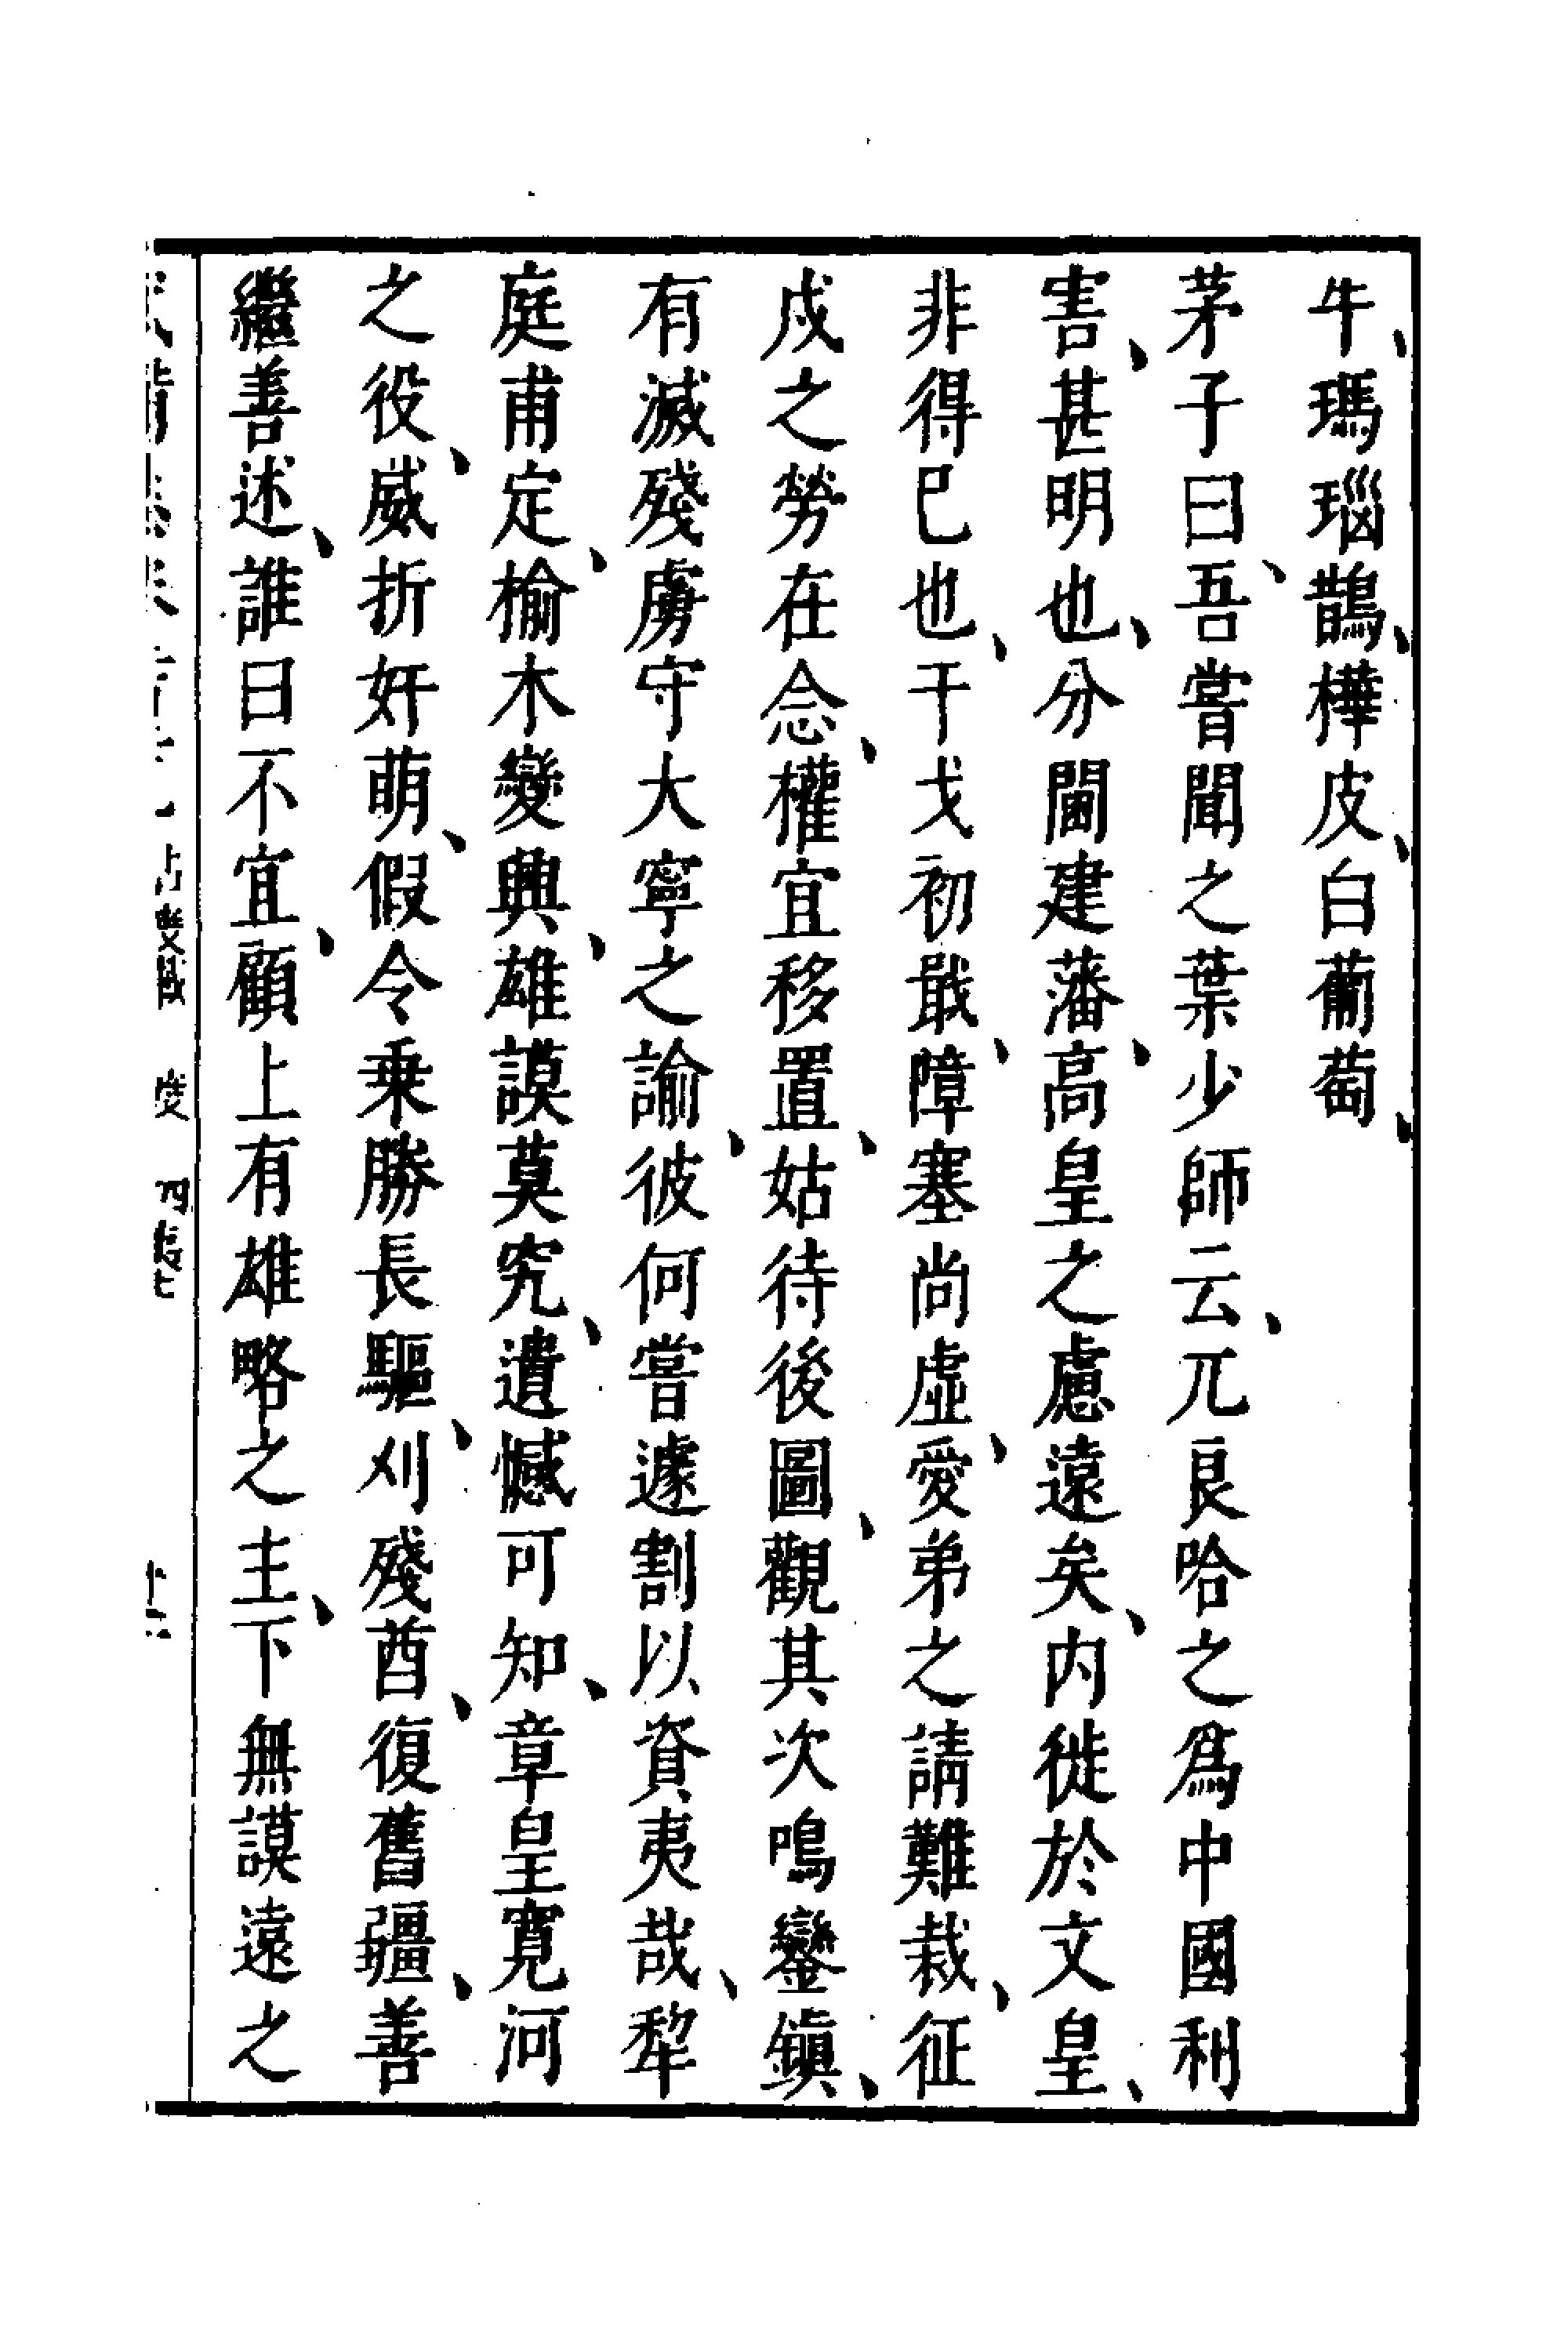 牛、瑪瑙鵲、樺皮、白葡萄、
茅子曰、吾嘗聞之葉少師云、兀良哈之為中國利
害、甚明也、分閫建藩、高皇之慮遠矣、內徙於文皇、
非得已也、干戈初戢、障塞尚虛、愛弟之請難裁、征
戍之勞在念、權宜移置、姑待後圖、觀其次鳴鑾鎮、
有滅殘虜守大寧之諭、彼何嘗遽割以資夷哉、犂
庭甫定、榆木變興、雄謨莫究、遺憾可知、章皇寬河
之役、威折奸萌、假令乗勝長驅、刈殘酋、復舊疆、善
繼善述、誰曰不宜、顧上有雄略之主、下無謨遠之